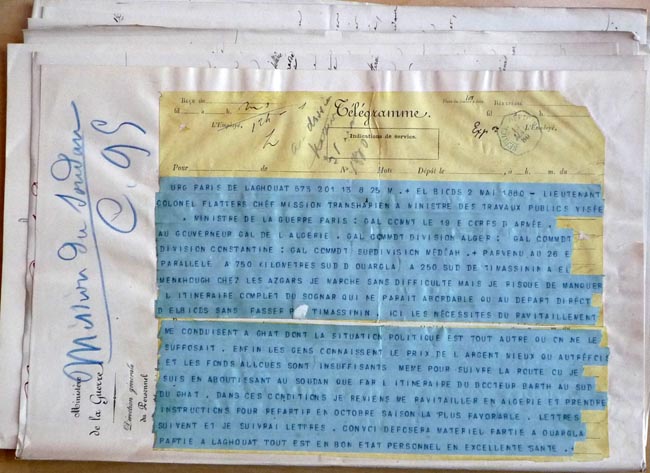 Mission du Soudan
C. 95
Ministère
de la Guerre
Direction générale
du Personnel
Reçu de
L'Employé,
Télégramme.
Indications de service.
L'Employé,
Pour
de
N°
Mots
Dépôt le
à
h.
m. du
URG PARIS DE LAGHOUAT 673 201 13 8 25 M .+ EL BIODS 2 MAI 1880 - LIEUTENANT
COLONEL FLATTERS CHEF MISSION TRANSHARIEN A MINISTRE DES TRAVAUX PUBLICS VISEE
. MINISTRE DE LA GUERRE PARIS : GAL COMNT LE 19 E CORPS D ARNEE .
AU GOUVERNEUR GAL DE L ALGERIE . GAL COMMDT DIVISION ALGER : GAL COMMDT
DIVISION CONSTANTINE : GAL COMMDT SUBDIVISION MEDEAH .+ PARVENU AU 26 E
PARALLELE A 750 KILOMETRES SUD D OUARGLA A 250 SUD DE TIMASSININ A EL
MENKHOUGH CHEZ LES AZGARS JE MARCHE SANS DIFFICULTE MAIS JE RISQUE DE MANQUER
L ITINERAIRE COMPLET DU SOGNAR QUI ME PARAIT ABORDABLE QU AU DEPART DIRECT
D ELBICES SANS PASSER TIMASSININ . ICI LES NECESSITES DU RAVITAILLEMENT
ME CONDUISENT A GHAT DONT LA SITUATION POLITIQUE EST TOUT AUTRE QU ON NE LE
SUPPOSAIT . ENFIN LES GENS CONNAISSENT LE PRIX DE L ARGENT MIEUX QU AUTREFOIS
ET LES FONDS ALLOUES SONT INSUFFISANTS MEME POUR SUIVRE LA ROUTE OU JE
SUIS EN ABOUTISSANT AU SOUDAN QUE PAR L ITINERAIRE DU DOCTEUR BARTH AU SUD
DU GHAT . DANS CES CONDITIONS JE REVIENS ME RAVITAILLER EN ALGERIE ET PRENDRE
INSTRUCTIONS POUR REPARTIR EN OCTOBRE SAISON LA PLUS FAVORABLE . LETTRES
SUIVENT ET JE SUIVRAI LETTRES . CONVOI DEPOSERA MATERIEL PARTIE A OUARGLA
PARTIE A LAGHOUAT TOUT EST EN BON ETAT PERSONNEL EN EXCELLENTE SANTE .+